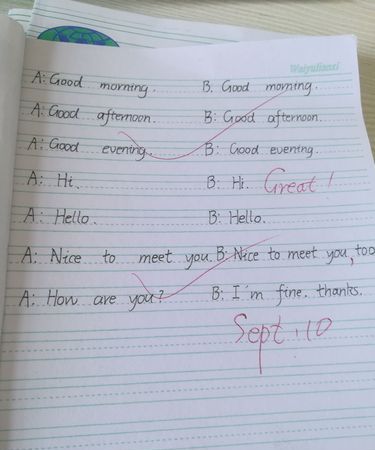 Waiyulianxi
A: Good morning. B. Good morning.
A: Good afternoon. B: Good afternoon.
A: Good evening. B: Good evening.
A: Hi. B: Hi. Great!
A: Hello. B: Hello.
A: Nice to meet you. B: Nice to meet you, too
A: How are you? B: I'm fine. thanks.
Sept. 10